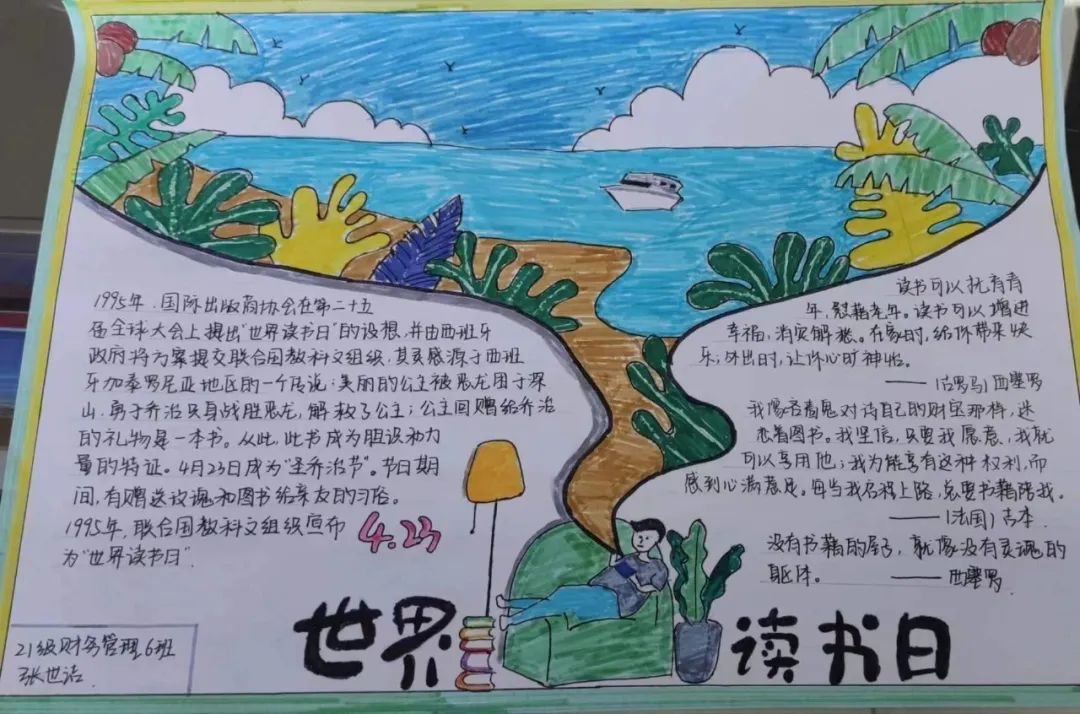 1995年，国际出版商协会在第二十五
届全球大会上提出"世界读书日"的设想，并由西班牙
政府将方案提交联合国教科文组织，其灵感源于西班
牙加泰罗尼亚地区的一个传说：美丽的公主被恶龙困于深
山，勇士乔治只身战胜恶龙，解救了公主；公主回赠给乔治
的礼物是一本书。从此，此书成为胆识和力
量的特征。4月23日成为"圣乔治节"。节日期
间，有赠送玫瑰和图书给亲友的习俗。
1995年，联合国教科文组织宣布
4.23
为"世界读书日"
读书可以抚育青
年，慰藉老年。读书可以增进
幸福，消灾解愁。在家时，给你带来快
乐；外出时，让你心旷神怡。
——（古罗马）西塞罗
我像吝啬鬼对待自己的财宝那样，迷
恋着图书。我坚信，只要我愿意，我就
可以享用他；我为能享有这种权利，而
感到心满意足。每当我启程上路，总要书籍陪我。
——（法国）
没有书籍的屋子，就像没有灵魂的
躯体。——西塞罗
世界读书日
21级财务管理6班
张世洁